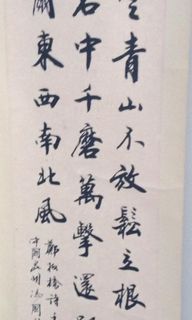 青山不放鬆立根
中千磨萬擊還
爾東西南北風
鄭板橋詩
中國